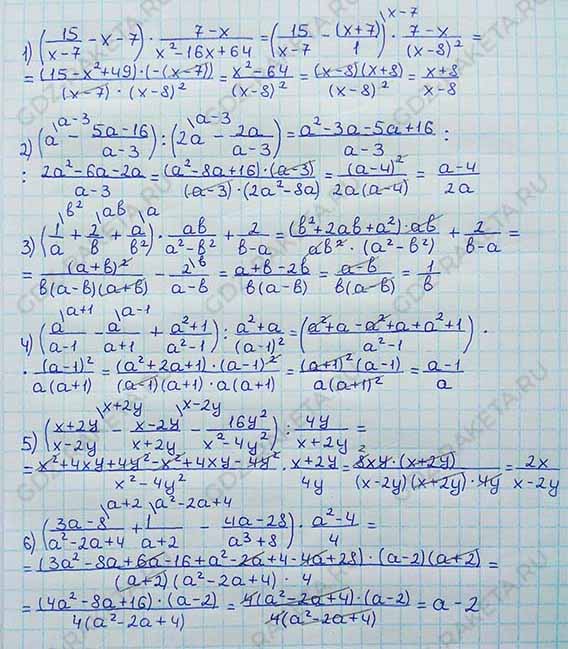 1) (15/(x-7) - x - 7) · (7-x)/(x²-16x+64) = (15/(x-7) - (x+7)/1 \x-7) · (7-x)/(x-8)² =
= ((15-x²+49)·(-(x-7)))/((x-7)·(x-8)²) = (x²-64)/(x-8)² = ((x-8)(x+8))/(x-8)² = (x+8)/(x-8)
2) (a \a-3 - (5a-16)/(a-3)) : (2a \a-3 - 2a/(a-3)) = (a²-3a-5a+16)/(a-3) :
: (2a²-6a-2a)/(a-3) = ((a²-8a+16)·(a-3))/((a-3)·(2a²-8a)) = (a-4)²/(2a(a-4)) = (a-4)/(2a)
3) (1/a \в² + 2/в \aв + a/в² \a) · aв/(a²-в²) + 2/(в-a) = ((в²+2aв+a²)·aв)/(aв²·(a²-в²)) + 2/(в-a) =
= (a+в)²/(в(a-в)(a+в)) - 2/(a-в) \в = (a+в-2в)/(в(a-в)) = (a-в)/(в(a-в)) = 1/в
4) (a/(a-1) \a+1 - a/(a+1) \a-1 + (a²+1)/(a²-1)) : (a²+a)/(a-1)² = ((a²+a-a²+a+a²+1)/(a²-1)) ·
· (a-1)²/(a(a+1)) = ((a²+2a+1)·(a-1)²)/((a-1)(a+1)·a(a+1)) = ((a+1)²(a-1))/(a(a+1)²) = (a-1)/a
5) ((x+2y)/(x-2y) \x+2y - (x-2y)/(x+2y) \x-2y - 16y²/(x²-4y²)) : 4y/(x+2y) =
= (x²+4xy+4y²-x²+4xy-4y²)/(x²-4y²) · (x+2y)/4y = (8xy·(x+2y))/((x-2y)(x+2y)·4y) 2 = 2x/(x-2y)
6) ((3a-8)/(a²-2a+4) \a+2 + 1/(a+2) \a²-2a+4 - (4a-28)/(a³+8)) · (a²-4)/4 =
= ((3a²-8a+6a-16+a²-2a+4-4a+28)·(a-2)(a+2))/((a+2)(a²-2a+4)·4) =
= ((4a²-8a+16)·(a-2))/(4(a²-2a+4)) = (4(a²-2a+4)·(a-2))/(4(a²-2a+4)) = a-2
GDZRAKETA.RU